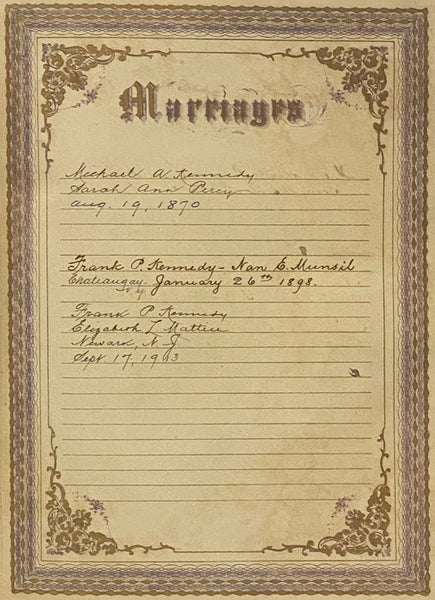 Marriages
Michael A Kennedy
Sarah Ann Percy
Aug. 19, 1870
Frank P. Kennedy - Nan E. Munsil
Chateaugay N.Y. January 26th 1898.
Frank P Kennedy
Elizabeth L
Newark, N. J.
Sept. 17, 1913